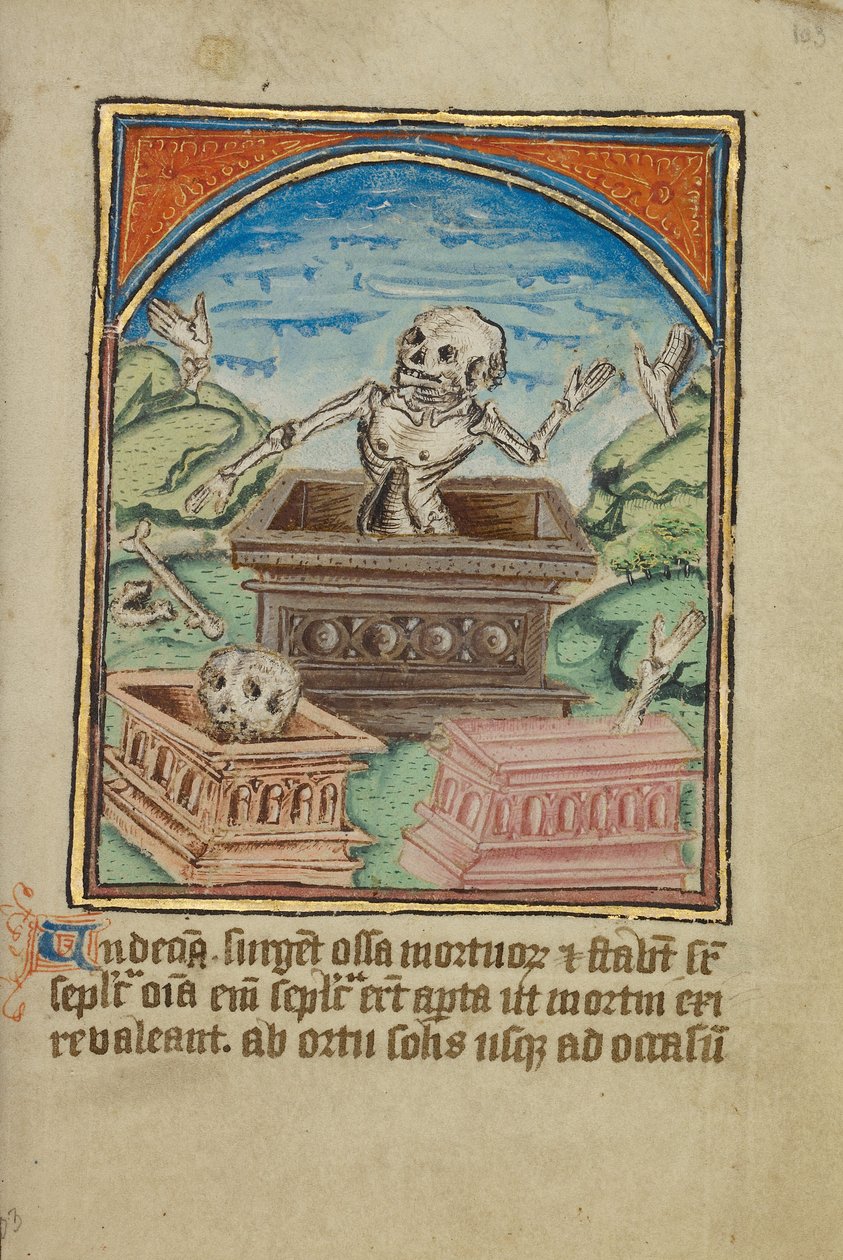 103
Undecīa. surgēt ossa mortuoꝝ ⁊ stabūt sr̄
seplᷓc oīa em̄ seplᷓc er̄t apta ut mortui exi
re valeant. ab ortu solis usqꝫ ad occasū